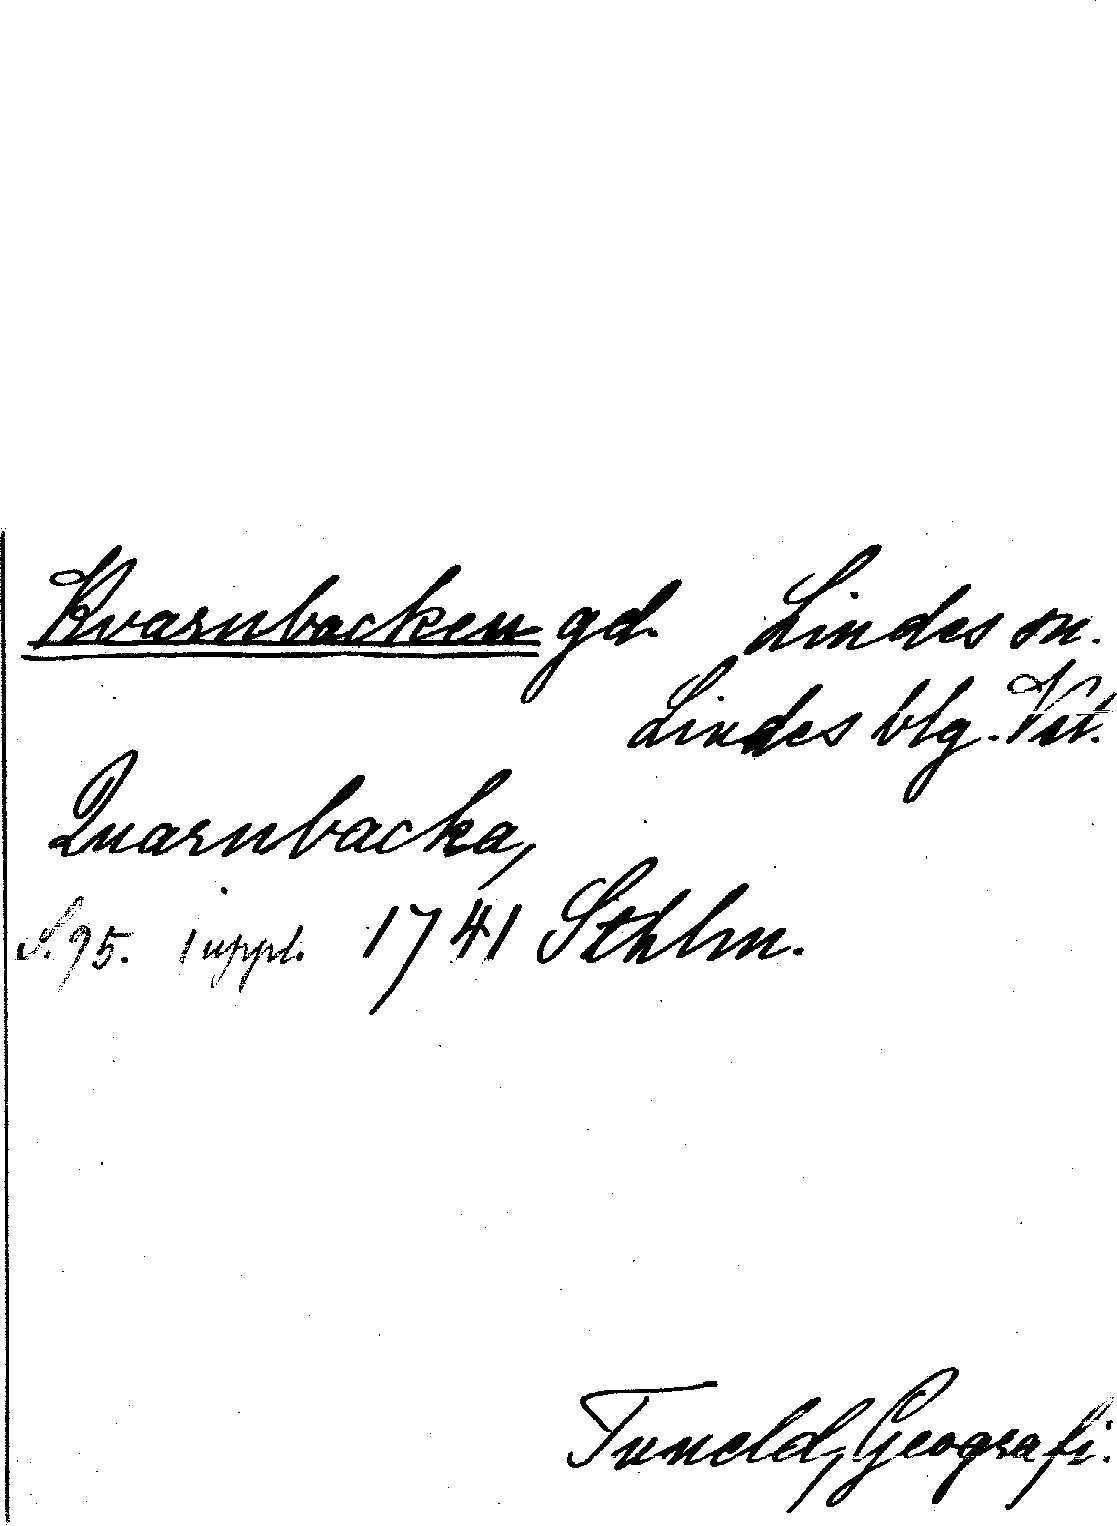 Kvarnbacken gd. Lindes sn.
Lindes blg. Vst.
Quarnbacka,
S. 95. 1 uppl. 1741 Sthlm.
Tuneld, Geografi.